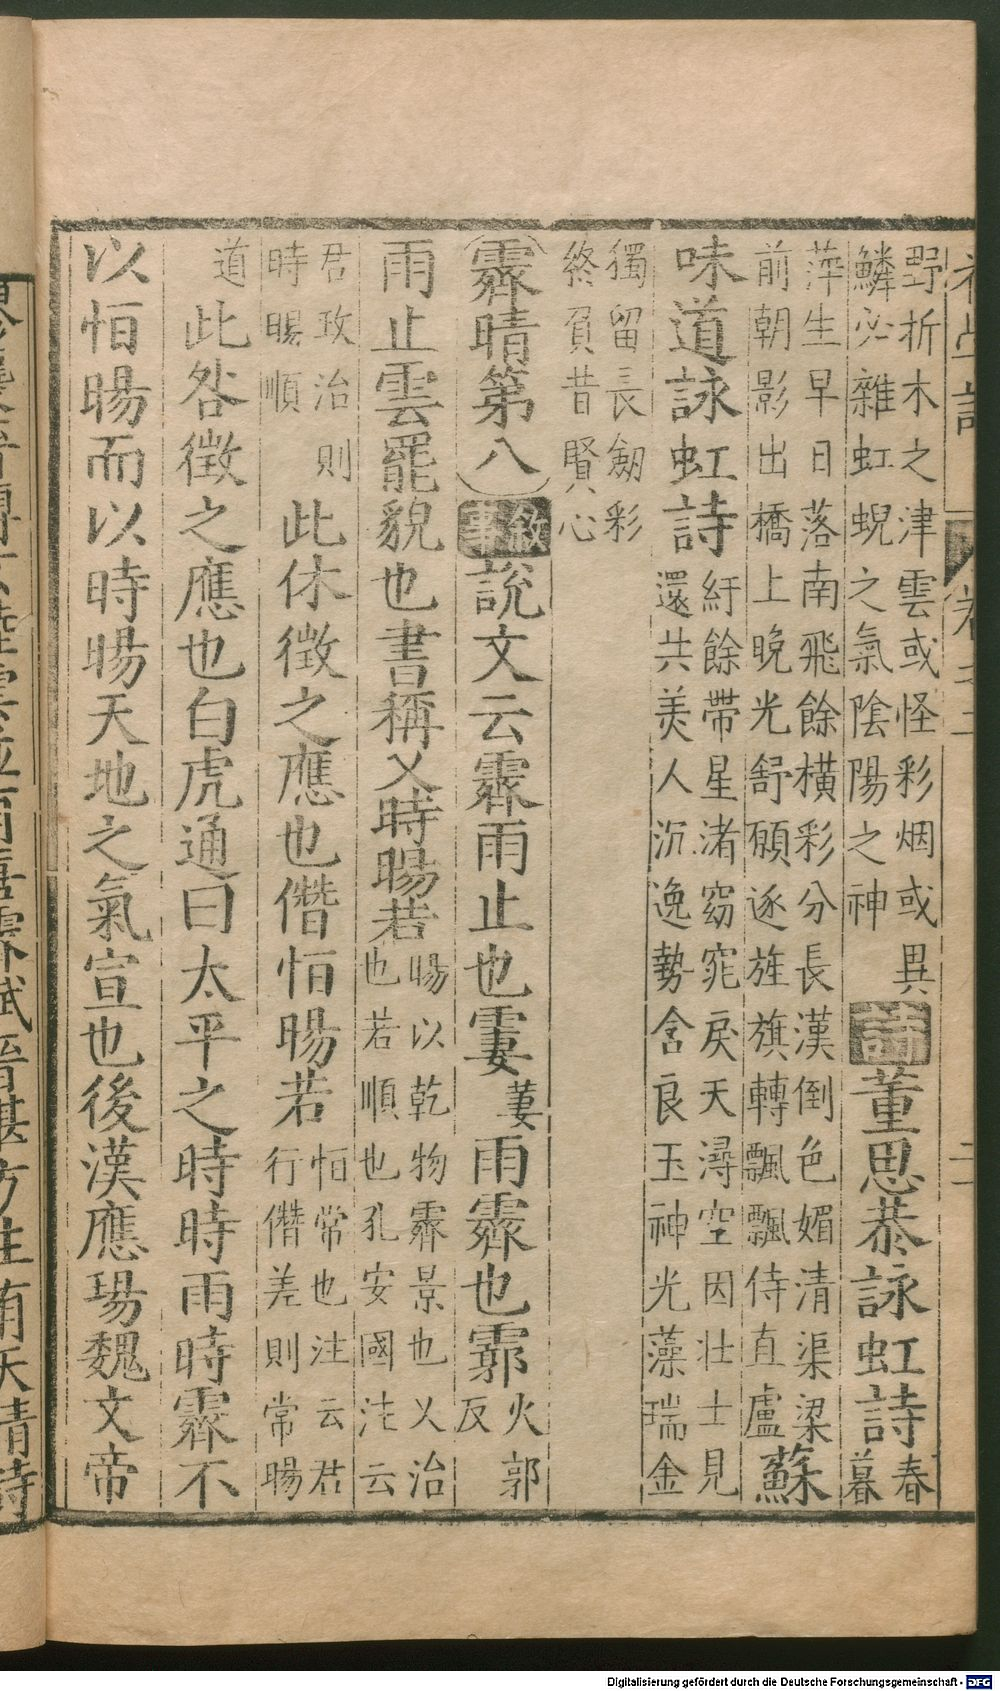 野折木之津雲或怪彩烟或異
鱗必雜虹蜺之氣陰陽之神
詩董思恭詠虹詩
春
暮
萍生早日落南飛餘橫彩分長漢倒色媚清渠梁
前朝影出橋上晚光舒願逐旌旗轉飄飄侍直盧
蘇
味道詠虹詩
紆餘帶星渚窈窕戾天潯空因壯士見
還共美人沉逸勢含良玉神光藻瑞金
獨留長劔彩
終負昔賢心
霽晴第八敘事說文云霽雨止也霋萋雨霽也霩火郭反
雨止雲罷貌也書稱乂時暘若
暘以乾物霽景也乂治
也若順也孔安國注云
君政治則
時暘順
此休徵之應也僭恒暘若
恒常也注云君
行僭差則常暘
道此咎徵之應也白虎通曰太平之時時雨時霽不
以恒暘而以時暘天地之氣宣也後漢應瑒魏文帝
Digitalisierung gefördert durch die Deutsche Forschungsgemeinschaft - DFG